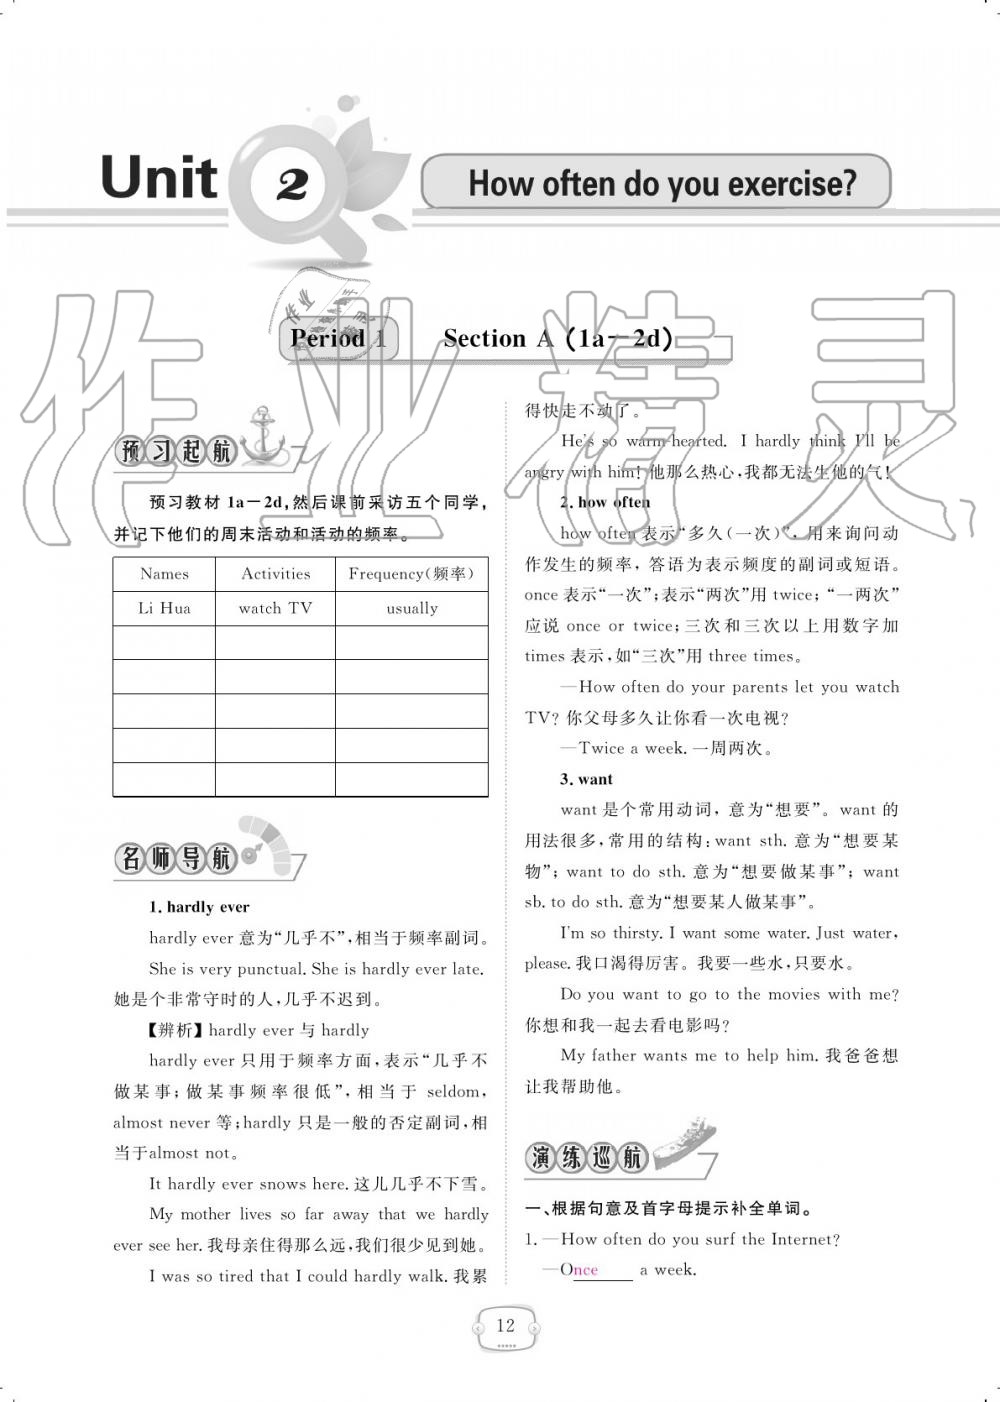 Unit 2 How often do you exercise?
Period 1 Section A（1a－2d）
预习起航
预习教材 1a－2d，然后课前采访五个同学，
并记下他们的周末活动和活动的频率。
Names Activities Frequency（频率）
Li Hua watch TV usually
名师导航
1. hardly ever
hardly ever 意为“几乎不”，相当于频率副词。
She is very punctual. She is hardly ever late.
她是个非常守时的人，几乎不迟到。
【辨析】hardly ever 与 hardly
hardly ever 只用于频率方面，表示“几乎不
做某事；做某事频率很低”，相当于 seldom，
almost never 等；hardly 只是一般的否定副词，相
当于almost not。
It hardly ever snows here. 这儿几乎不下雪。
My mother lives so far away that we hardly
ever see her. 我母亲住得那么远，我们很少见到她。
I was so tired that I could hardly walk. 我累
得快走不动了。
He's so warm-hearted. I hardly think I'll be
angry with him! 他那么热心，我都无法生他的气！
2. how often
how often 表示“多久（一次）”，用来询问动
作发生的频率，答语为表示频度的副词或短语。
once 表示“一次”；表示“两次”用 twice；“一两次”
应说 once or twice；三次和三次以上用数字加
times 表示，如“三次”用 three times。
—How often do your parents let you watch
TV? 你父母多久让你看一次电视？
—Twice a week. 一周两次。
3. want
want 是个常用动词，意为“想要”。want 的
用法很多，常用的结构：want sth. 意为“想要某
物”；want to do sth. 意为“想要做某事”；want
sb. to do sth. 意为“想要某人做某事”。
I'm so thirsty. I want some water. Just water,
please. 我口渴得厉害。我要一些水，只要水。
Do you want to go to the movies with me?
你想和我一起去看电影吗？
My father wants me to help him. 我爸爸想
让我帮助他。
演练巡航
一、根据句意及首字母提示补全单词。
1. —How often do you surf the Internet?
—Once a week.
12
作业精灵